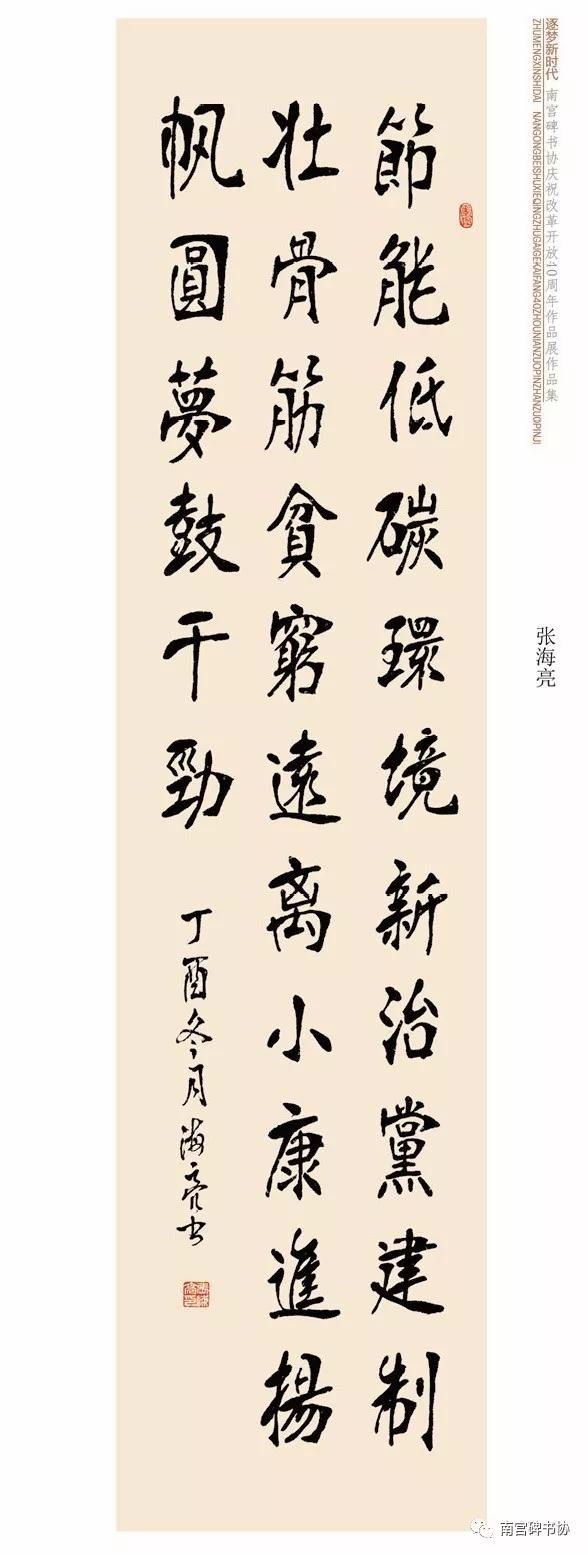 節能低碳環境新治黨建制
壯骨筋貧窮遠离小康進楊
帆圓夢鼓干勁
丁酉冬月海亮书
逐梦新时代 南宫碑书协庆祝改革开放40周年作品展作品集
ZHUMENGXINSHIDAI NANGONGBEISHUXIEQINGZHUGAIGEKAIFANG40ZHOUNIANZUOPINZHANZUOPINJI
张海亮
南宫碑书协